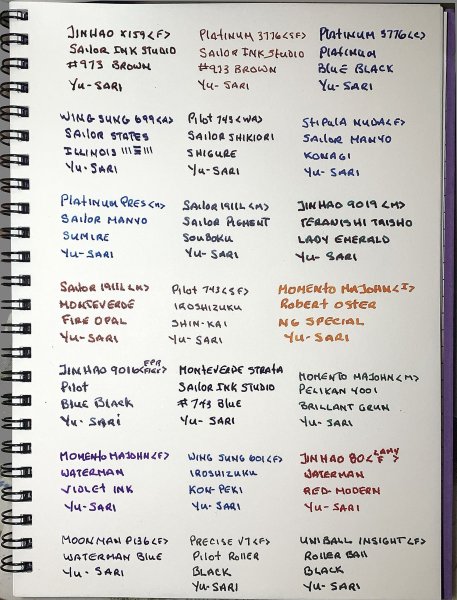 JINHAO X159 <F>
SAILOR INK STUDIO
#973 BROWN
YU-SARI
PLATINUM 3776 <SF>
SAILOR INK STUDIO
#973 BROWN
YU-SARI
PLATINUM 3776 <C>
PLATINUM
BLUE BLACK
YU-SARI
WING SUNG 699 <M>
SAILOR STATES
ILLINOIS
YU-SARI
Pilot 743 <WA>
SAILOR SHIKIORI
SHIGURE
YU-SARI
STIPULA NUDA <F>
SAILOR MANYO
KONAGI
YU-SARI
PLATINUM PRES <M>
SAILOR MANYO
SUMIRE
YU-SARI
SAILOR 1911L <M>
SAILOR PIGMENT
SOUBOKU
YU-SARI
JINHAO 9019 <M>
TERANISHI TAISHO
LADY EMERALD
YU-SARI
SAILOR 1911L <M>
MONTEVERDE
FIRE OPAL
YU-SARI
Pilot 743 <SF>
IROSHIZUKU
SHIN-KAI
YU-SARI
MOMENTO MAJOHN <I>
Robert OSTER
NG SPECIAL
YU-SARI
JINHAO 9016
Pilot
BLUE BLACK
YU-SARi
MONTEVERDE STRATA
SAILOR INK STUDIO
#743 BLUE
YU-SARI
MOMENTO MAJOHN <M>
PELIKAN 4001
BRILLANT GRUN
YU-SARI
MOMENTO MAJOHN <F>
WATERMAN
VIOLET INK
YU-SARI
WING SUNG 601 <F>
IROSHIZUKU
KON-PEKI
YU-SARI
JINHAO 80 <LAMY F>
WATERMAN
RED-MODERN
YU-SARI
MOONMAN P136 <F>
WATERMAN BLUE
YU-SARI
PRECISE V7 <F>
Pilot Roller
BLACK
YU-SARI
UNIBALL INSIGHT <F>
Roller Ball
BLACK
YU-SARI